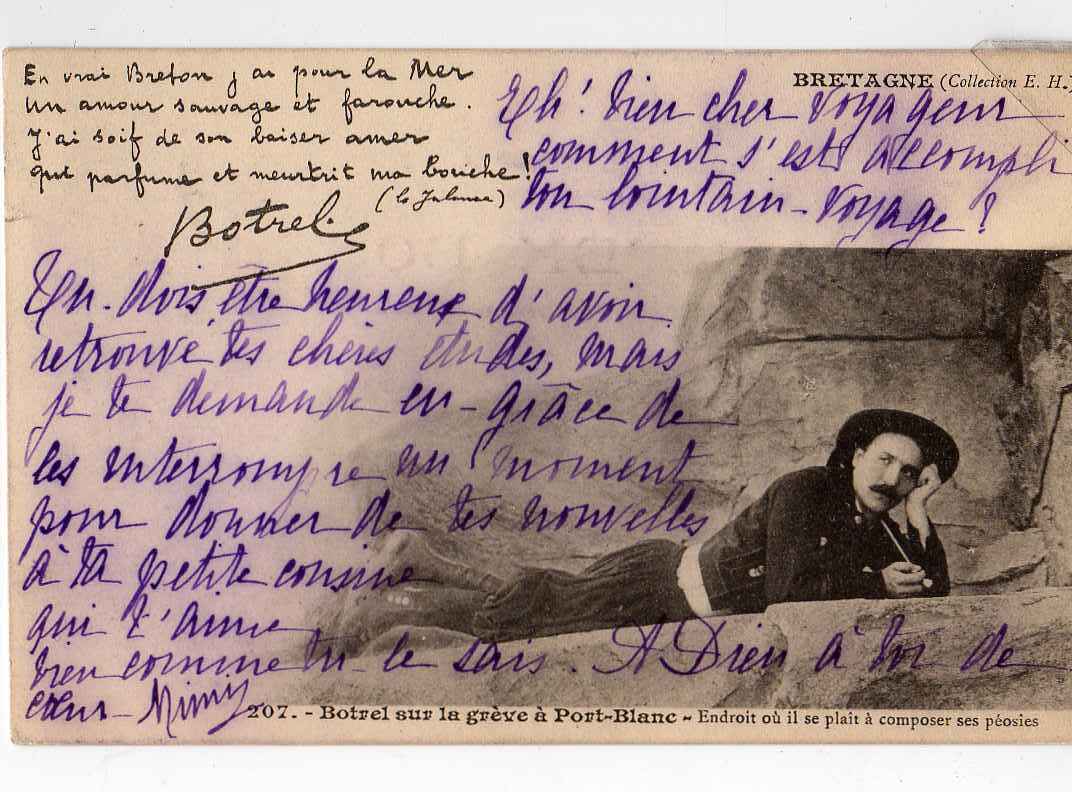 En vrai Breton j'ai pour la Mer
un amour sauvage et farouche.
J'ai soif de son baiser amer
qui parfume et meurtrit ma bouche!
Botrel
BRETAGNE (Collection E. H.)
Eh! bien cher voyageur
comment s'est accompli
ton lointain voyage?
Tu dois être heureux d'avoir
retrouvé tes chères études, mais
je te demande en grâce de
les interrompre un moment
pour donner de tes nouvelles
à ta petite cousine
qui t'aime
bien comme tu le sais. A Dieu à toi de
cœur - Mimi
207. - Botrel sur la grève à Port-Blanc - Endroit où il se plaît à composer ses péosies